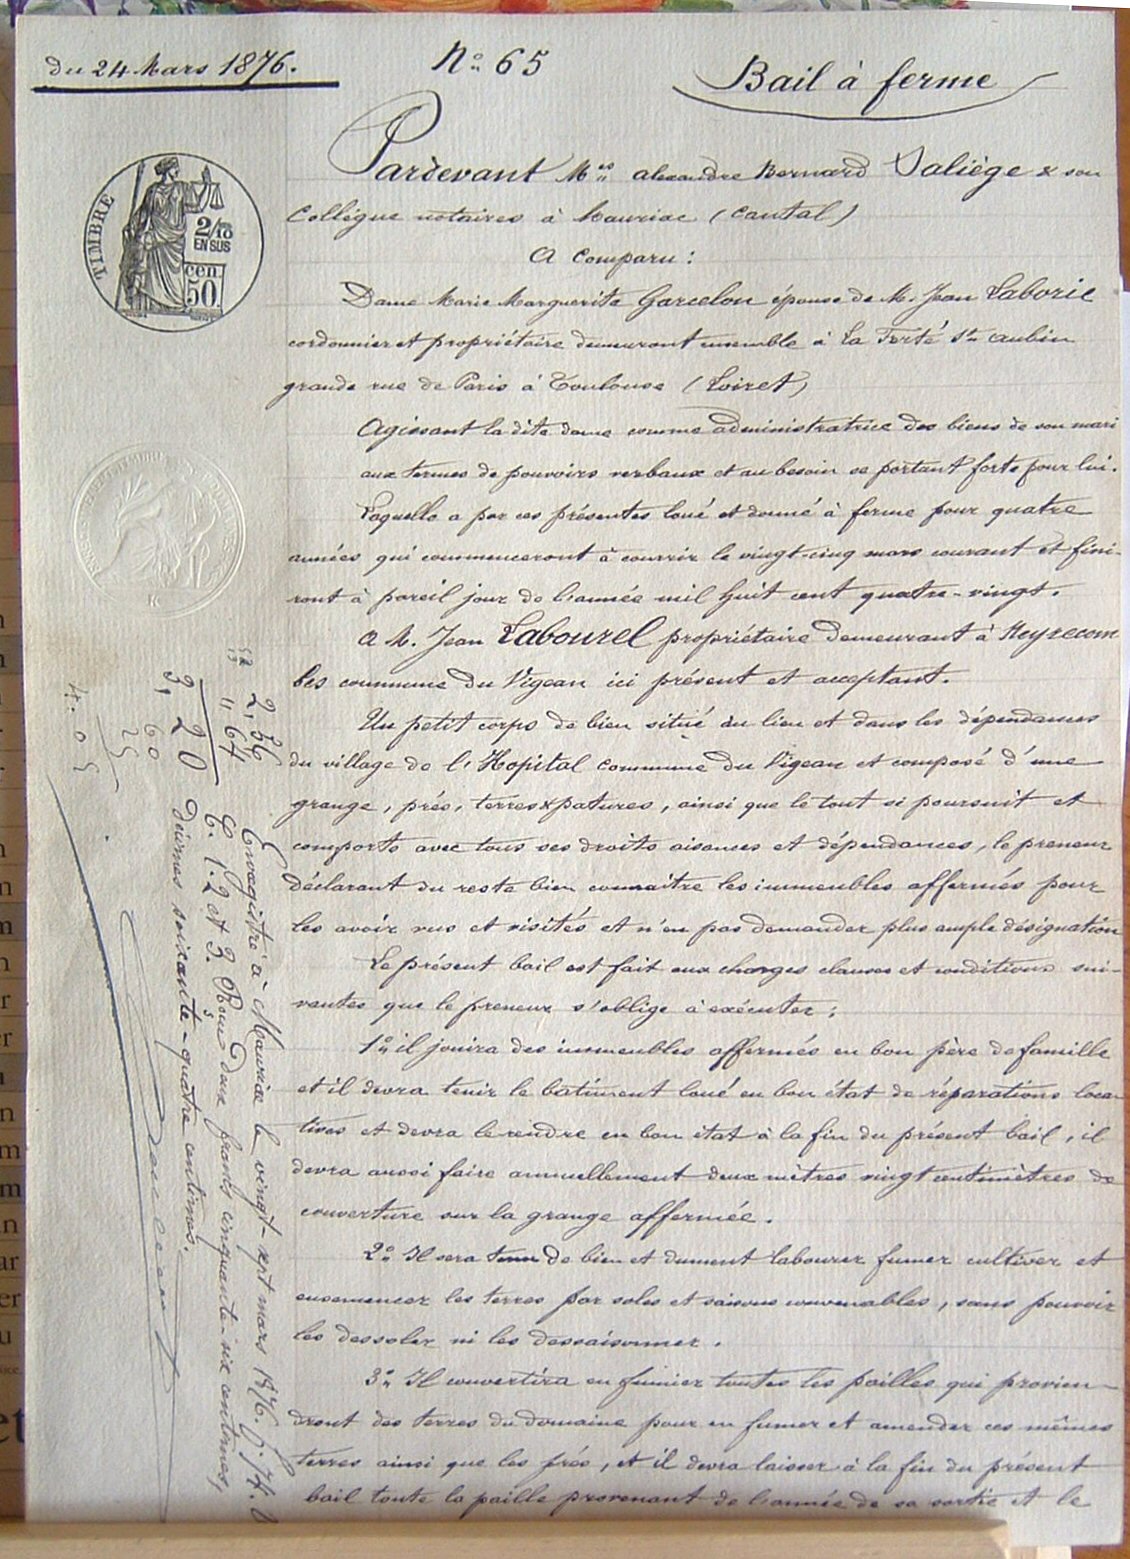 du 24 Mars 1876.
Nº 65
Bail à ferme
TIMBRE
2/10
EN SUS
cen.
50.
Pardevant Mes alexandre Bernard Saliège & son
Collègue notaires à Mauriac (Cantal)
A Comparu :
Dame Marie Marguerite Garcelon épouse de M. Jean Laborie
cordonnier et propriétaire demeurant ensemble à La Ferté St aubin
grande rue de Paris à Toulouse (Loiret)
Agissant la dite dame comme administratrice des biens de son mari
aux termes de pouvoirs verbaux et au besoin se portant forte pour lui.
Laquelle a par ces présentes loué et donné à ferme pour quatre
années qui commenceront à courrir le vingt-cinq mars courant et fini-
ront à pareil jour de l'année mil huit cent quatre-vingt.
A M. Jean Labourel propriétaire demeurant à Meyrecom
bes commune du Vigean ici présent et acceptant.
Un petit corps de bien situé au lieu et dans les dépendances
du village de l'Hopital commune du Vigean et composé d'une
grange, prés, terres & patures, ainsi que le tout si poursuit et
comporte avec tous ses droits aisances et dépendances, le preneur
déclarant du reste bien connaitre les immeubles affermés pour
les avoir vus et visités et n'en pas demander plus ample désignation
Le présent bail est fait aux charges clauses et conditions sui-
vantes que le preneur s'oblige à exécuter :
1º il jouira des immeubles affermés en bon père de famille
et il devra tenir le batiment loué en bon état de réparations loca-
tives et devra le rendre en bon état à la fin du présent bail, il
devra aussi faire annuellement deux mètres vingt centimètres de
couverture sur la grange affermée.
2º Il sera tenu de bien et dument labourer fumer cultiver et
ensemencer les terres par soles et saisons convenables, sans pouvoir
les dessoler ni les dessaisonner.
3º Il convertira en fumier toutes les pailles qui provien-
dront des terres du domaine pour en fumer et amender ces mêmes
terres ainsi que les prés, et il devra laisser à la fin du présent
bail toute la paille provenant de l'année de sa sortie et le
Enregistré à Mauriac le vingt-sept mars 1876. f. 74.
C. 1. 2 et 3. Reçu deux francs cinquante-six centimes,
Décimes soixante-quatre centimes.
2,56
",64
3,20
60
25
4.05